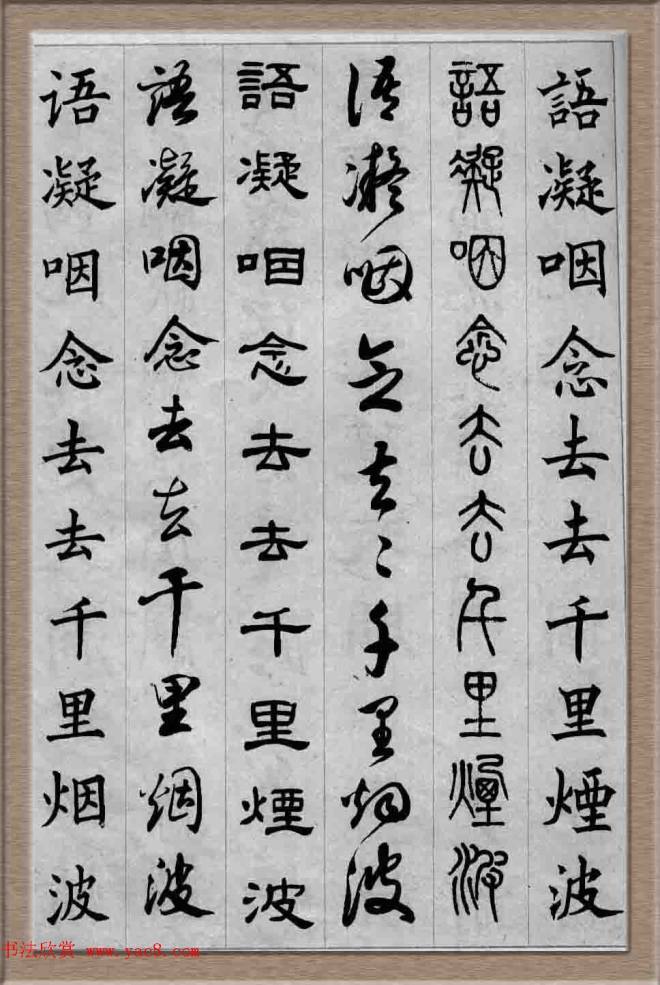 語凝咽念去去千里煙波
語凝咽念去去千里煙波
语凝咽念去去千里烟波
語凝咽念去去千里煙波
語凝咽念去去千里烟波
语凝咽念去去千里烟波
书法欣赏 www.yac8.com